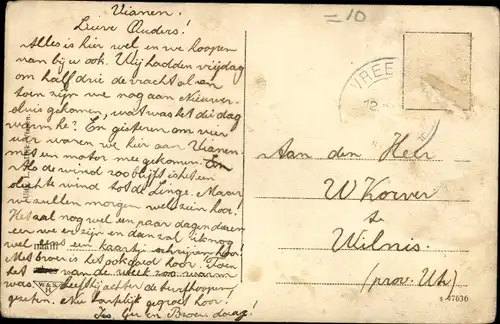 Vianen!
Lieve Ouders!
Alles is hier wel en we hoopen
van bij u ook. Wij hadden vrijdag
om half drie de vracht al en
toen zijn we nog aan Nieuwer-
sluis gekomen, wat was het die dag
warm he? En gisteren om vier
uur waren we hier aan Vianen
met een motor mee gekomen. En
Als de wind zoo blijft is het een
slechte wind tot de Linge. Maar
we zullen morgen wel zien hoor!
Het zal nog wel een paar dagen duren
eer we er zijn en dan zal ik nog
wel eens een kaartje schrijven hoor!
Met broer is het ook goed hoor. Toen
het van de week zoo warm
was heeft hij achter de
gezeten. Nu hartelijk gegroet hoor!
en Broer. daag!
=10
VREE
12
Aan den Heer
W Koever
te
Wilnis.
(prov. Utr)
47036